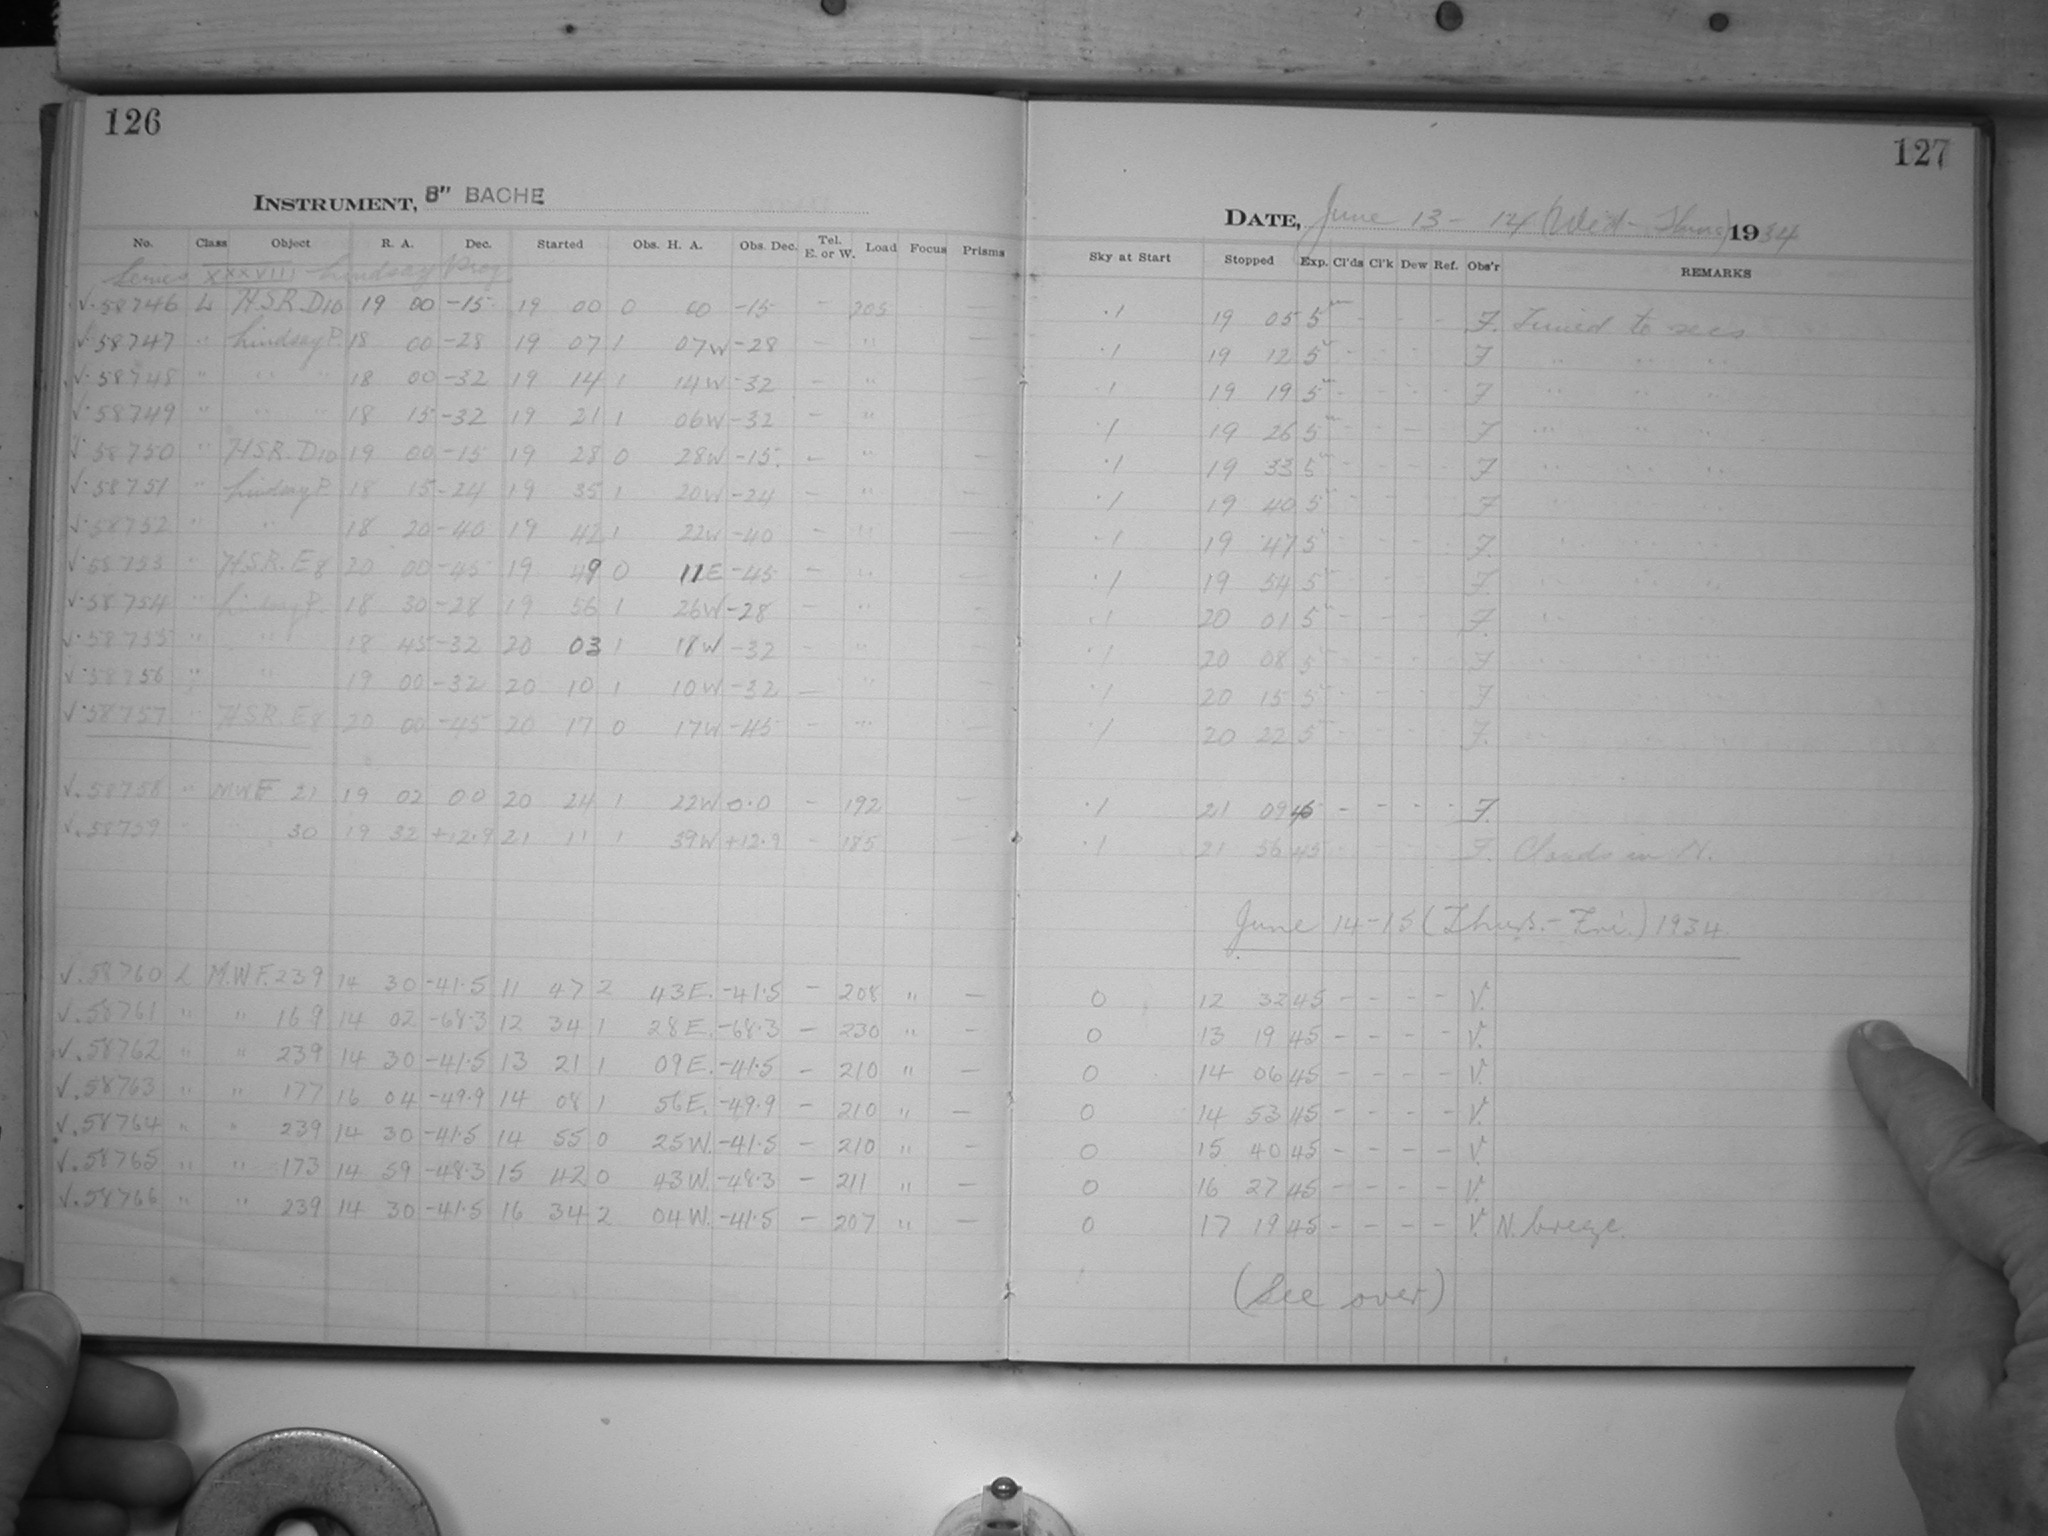 126
INSTRUMENT, 8" BACHE
No. Class Object R. A. Dec. Started Obs. H. A. Obs. Dec. Tel. E. or W. Load Focus Prisms
Series XXXVIII Lindsay Prog
√.58746 L H.S.R. D10 19 00 -15 19 00 0 00 -15 - 205 -
√.58747 " Lindsay P. 18 00 -28 19 07 1 07W -28 - " -
√.58748 " " " 18 00 -32 19 14 1 14W -32 - " -
√.58749 " " " 18 15 -32 19 21 1 06W -32 - " -
√.58750 " H.S.R. D10 19 00 -15 19 28 0 28W -15. - " -
√.58751 " Lindsay P. 18 15 -24 19 35 1 20W -24 - " -
√.58752 " " 18 20 -40 19 42 1 22W -40 - " -
√.58753 " H.S.R. E8 20 00 -45 19 49 0 11E -45 - " -
√.58754 " Lindsay P. 18 30 -28 19 56 1 26W -28 - " -
√.58755 " " 18 45 -32 20 03 1 18W -32 - " -
√.58756 " " 19 00 -32 20 10 1 10W -32 - " -
√.58757 " H.S.R. E8 20 00 -45 20 17 0 17W -45 - " -
√.58758 " MWF 21 19 02 00 20 24 1 22W 0.0 - 192 -
√.58759 " " 30 19 32 +12.9 21 11 1 39W +12.9 - 185 -
√.58760 L M.W.F. 239 14 30 -41.5 11 47 2 43E. -41.5 - 208 " -
√.58761 " " 169 14 02 -68.3 12 34 1 28E. -68.3 - 230 " -
√.58762 " " 239 14 30 -41.5 13 21 1 09E. -41.5 - 210 " -
√.58763 " " 177 16 04 -49.9 14 08 1 56E. -49.9 - 210 " -
√.58764 " " 239 14 30 -41.5 14 55 0 25W. -41.5 - 210 " -
√.58765 " " 173 14 59 -48.3 15 42 0 43W. -48.3 - 211 " -
√.58766 " " 239 14 30 -41.5 16 34 2 04W. -41.5 - 207 " -
127
DATE, June 13 - 14 (Wed - Thurs) 1934
Sky at Start Stopped Exp. Cl'ds Cl'k Dew Ref. Obs'r REMARKS
.1 19 05 5m - - - F. Timed to secs
.1 19 12 5 - - - F " " "
.1 19 19 5 - - - F " " "
.1 19 26 5 - - - F " " "
.1 19 33 5 - - - F " " "
.1 19 40 5 - - - F " " "
.1 19 47 5 - - - F. " " "
.1 19 54 5 - - - F. " " "
.1 20 01 5 - - - F. " " "
.1 20 08 5 - - - F " " "
.1 20 15 5 - - - F " " "
.1 20 22 5 - - - F. " " "
.1 21 09 45 - - - - F.
.1 21 56 45 F. Clouds in N.
June 14-15 (Thurs.-Fri.) 1934
0 12 32 45 - - - - V.
0 13 19 45 - - - - V.
0 14 06 45 - - - - V.
0 14 53 45 - - - - V.
0 15 40 45 - - - - V.
0 16 27 45 - - - - V.
0 17 19 45 - - - - V. N. breeze.
(See over)